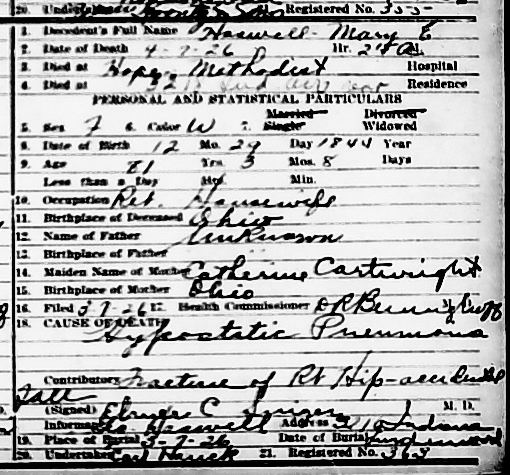 20. Undertaker & Son Registered No. 355
1. Decedent's Full Name Haswell - Mary E
2. Date of Death 4-7-26 Hr. 2 A.M.
3. Died at Methodist Hospital
4. Died at Residence
PERSONAL AND STATISTICAL PARTICULARS
Married Divorced
5. Sex F 6. Color W 7. Single Widowed
8. Date of Birth 12 Mo. 29 Day 1844 Year
9. Age 81 Yrs. 3 Mos. 8 Days
Less than a Day Hrs. Min.
10. Occupation Ret. Housewife
11. Birthplace of Deceased Ohio
12. Name of Father Unknown
13. Birthplace of Father
14. Maiden Name of Mother Catherine Cartwright
15. Birthplace of Mother Ohio
16. Filed 3-7-26 17. Health Commissioner
18. CAUSE OF DEATH
Hypostatic Pneumonia
Contributory Fracture of Rt Hip-accidental
Fall
(Signed) Elmer C M. D.
Informant Haswell Address Indiana
19. Place of Burial 3-7-26 Date of Burial
20. Undertaker Carl 21. Registered No. 363